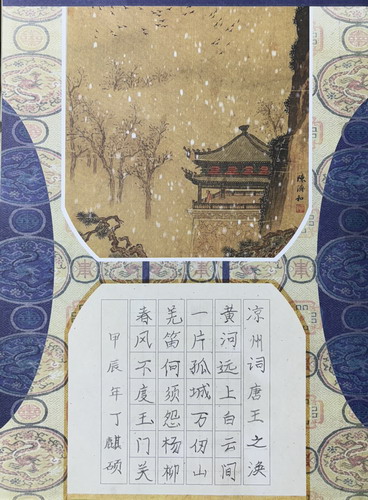 陈济和
凉州词唐王之涣
黄河远上白云间
一片孤城万仞山
羌笛何须怨杨柳
春风不度玉门关
甲辰年丁麒硕